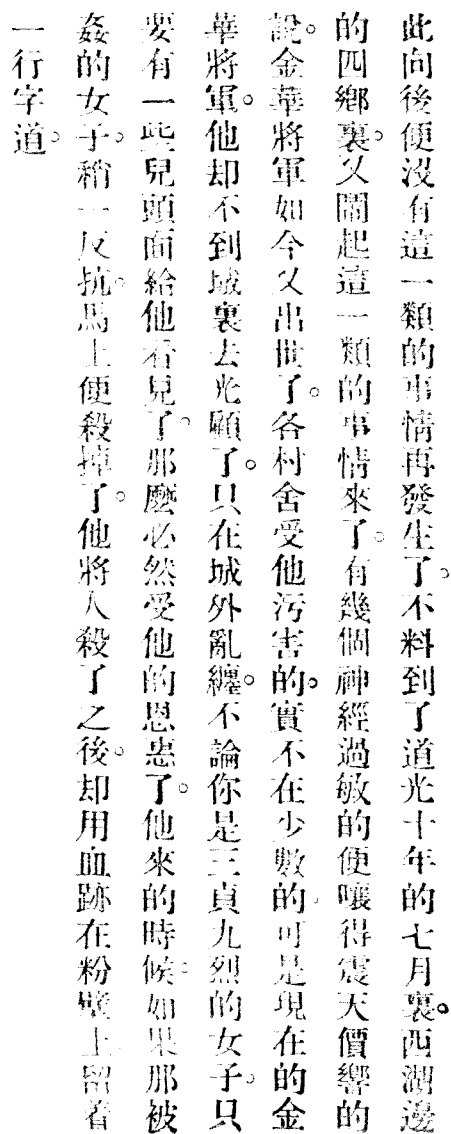 此向後便沒有這一類的事情再發生了。不料到了道光十年的七月裏。西湖邊
的四鄉裏。又鬧起這一類的事情來了。有幾個神經過敏的便嚷得震天價響的
說。金華將軍如今又出世了。各村舍受他污害的。實不在少數的。可是現在的金
華將軍。他却不到城裏去光顧了。只在城外亂纏。不論你是三貞九烈的女子。只
要有一些兒頭面給他看見了。那麼必然受他的恩惠了。他來的時候。如果那被
姦的女子。稍一反抗。馬上便殺掉了。他將人殺了之後。却用血跡在粉壁上留着
一行字道。